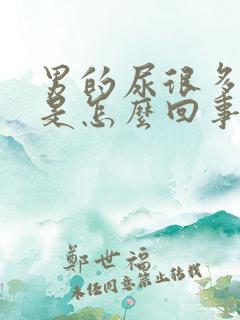 男的尿很多
是怎麼回事
鄭世福
未经同意禁止转载